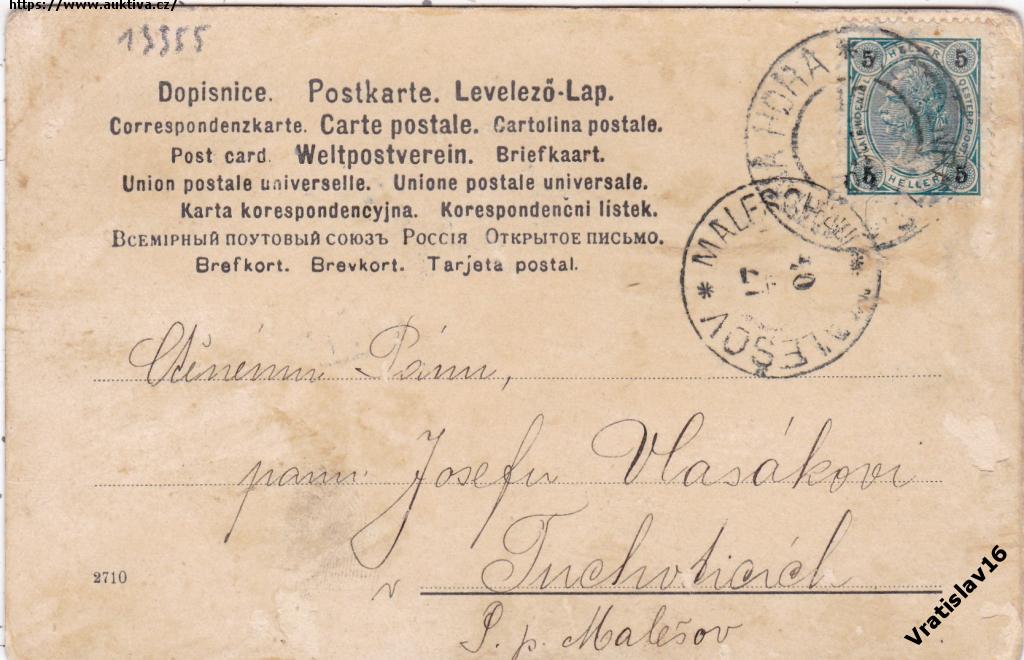 https://www.auktiva.cz/
13355
Dopisnice. Postkarte. Levelező-Lap.
Correspondenzkarte. Carte postale. Cartolina postale.
Post card. Weltpostverein. Briefkaart.
Union postale universelle. Unione postale universale.
Karta korespondencyjna. Korespondenčni lístek.
Всемірный поутовый союзъ Россія Открытое письмо.
Brefkort. Brevkort. Tarjeta postal.
5 HELLER 5
5 HELLER 5
A HORA *
* MALEŠOV *
17
04
MALEŠOV
Ctěnému Pánu,
panu Josefu Vlasákovi
v Tuchoticích
P. p. Malešov
2710
Vratislav16